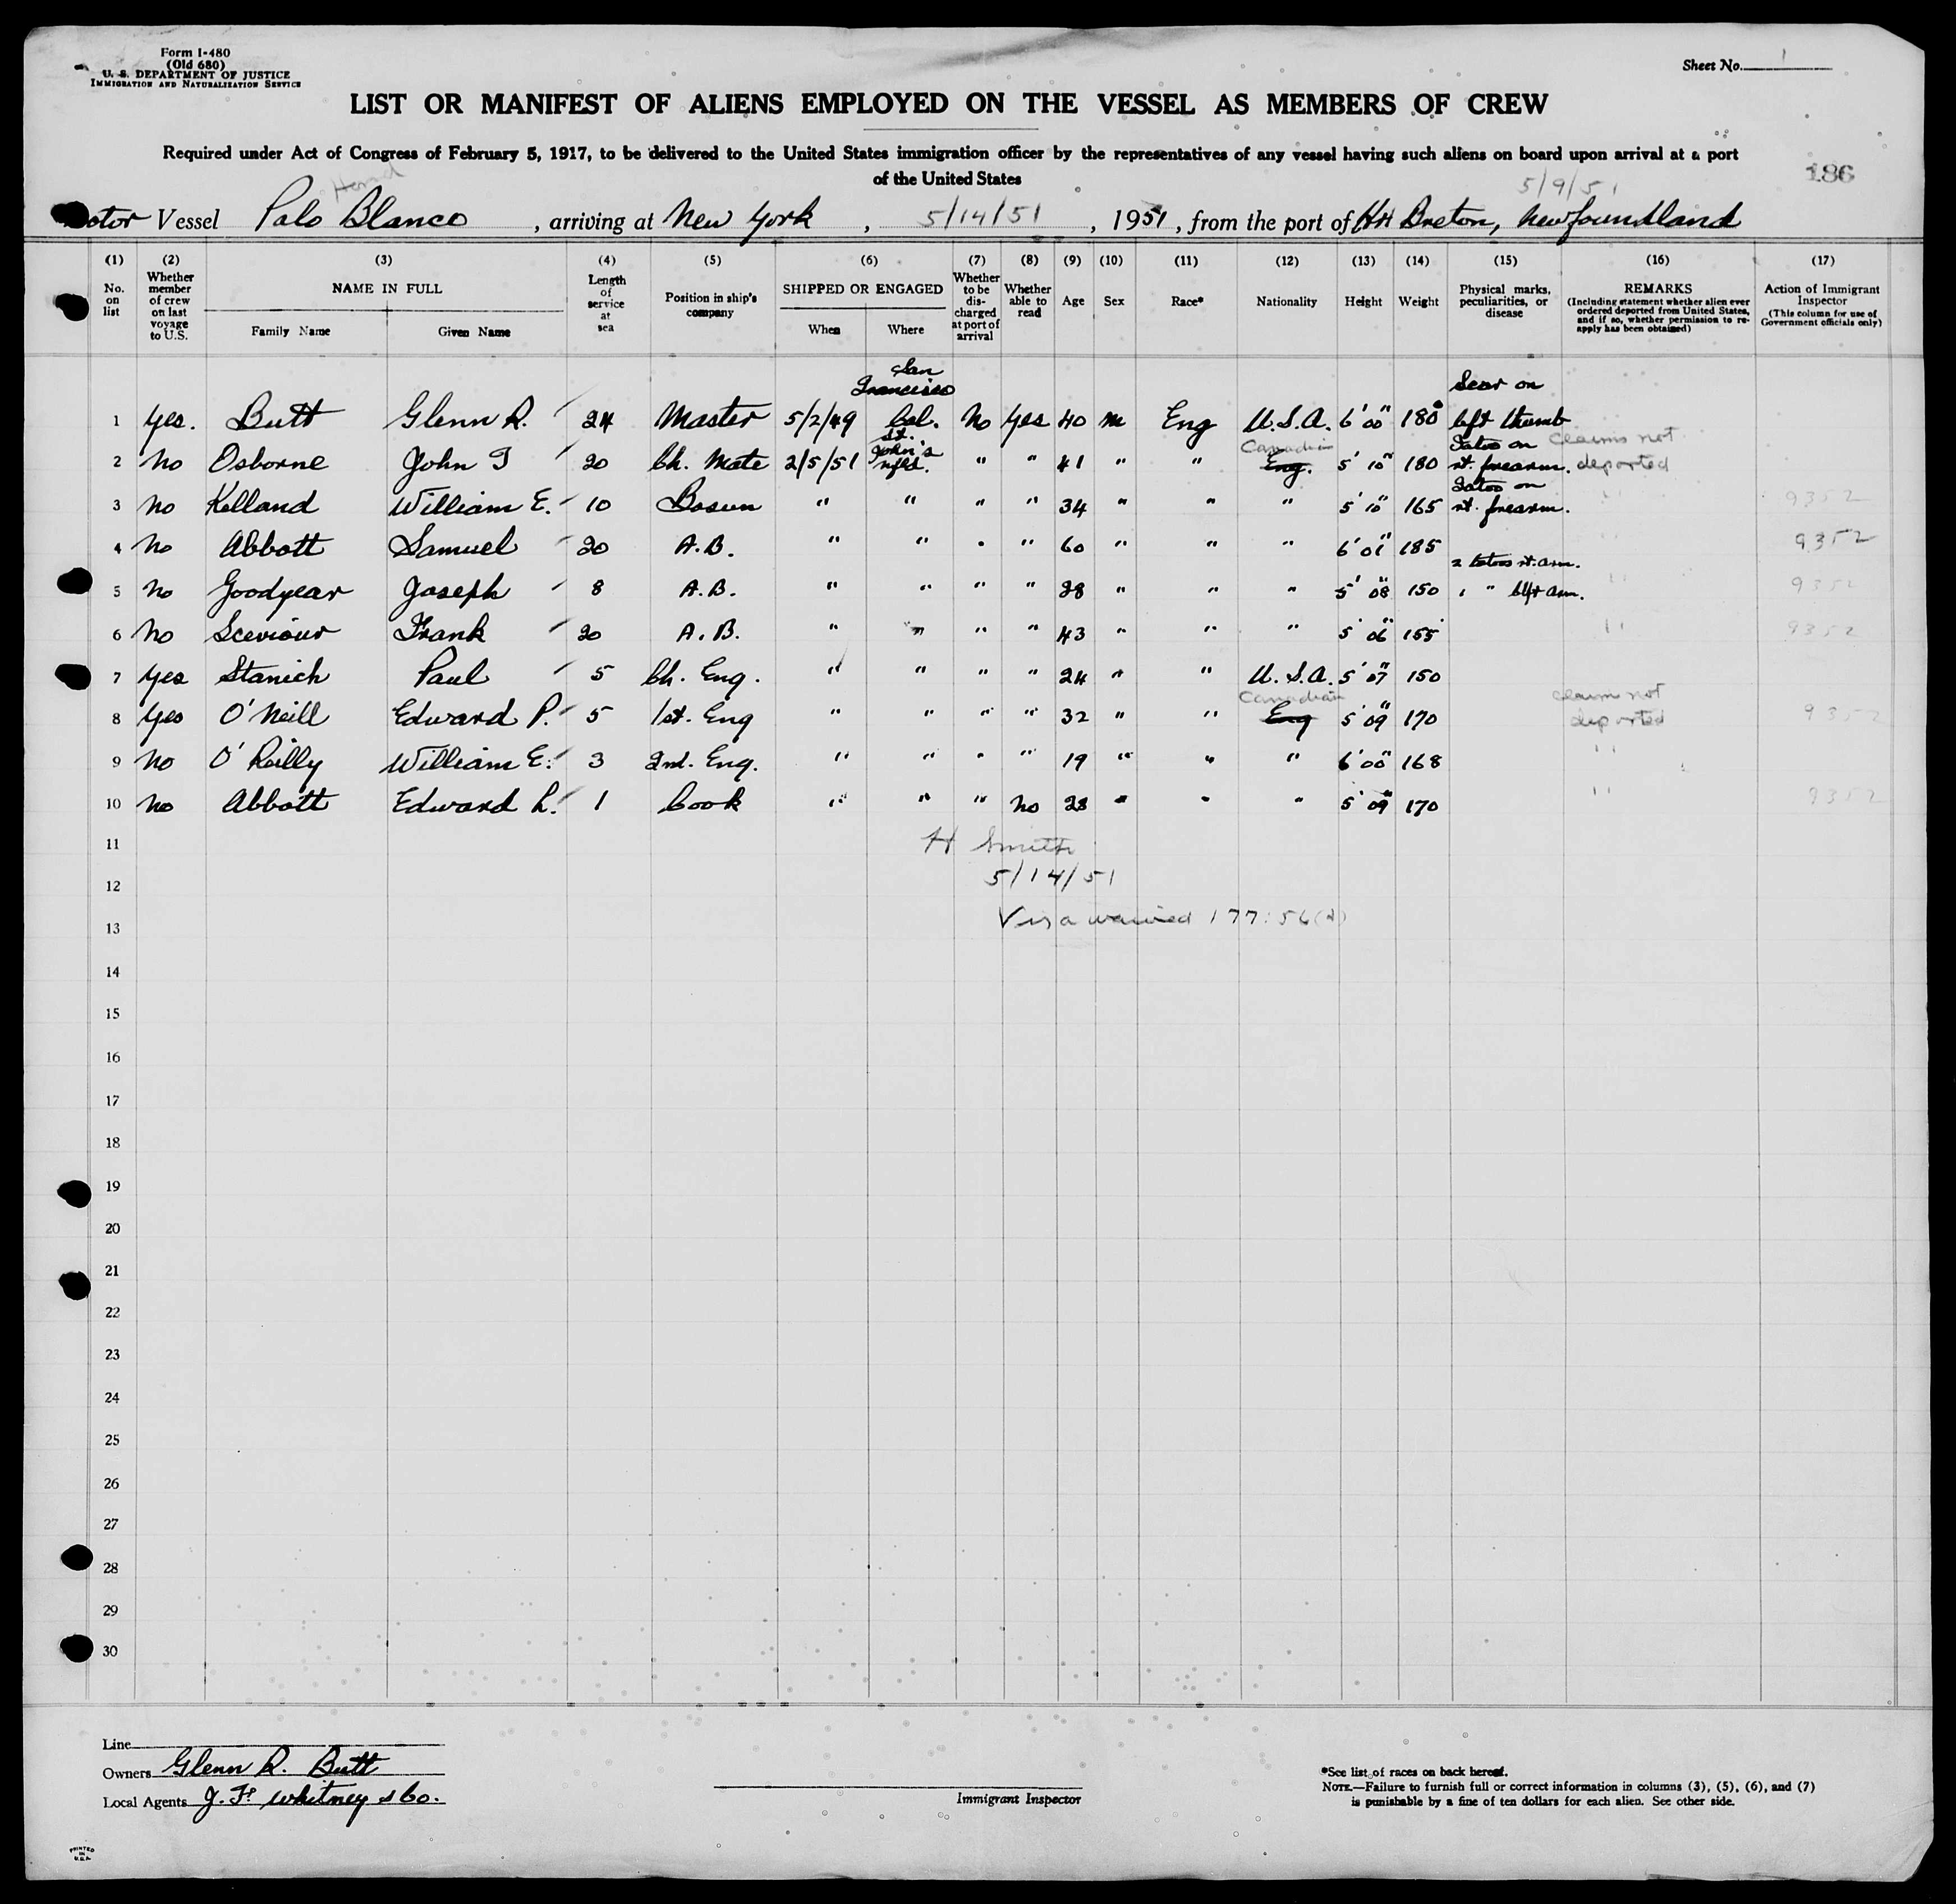 Form I-480
(Old 680)
U. S. DEPARTMENT OF JUSTICE
IMMIGRATION AND NATURALIZATION SERVICE
Sheet No. 1
LIST OR MANIFEST OF ALIENS EMPLOYED ON THE VESSEL AS MEMBERS OF CREW
Required under Act of Congress of February 5, 1917, to be delivered to the United States immigration officer by the representatives of any vessel having such aliens on board upon arrival at a port
of the United States
186
5/9/51
Vessel Palo Blanco, arriving at New York, 5/14/51, 1951, from the port of Hr Breton, Newfoundland
(1) (2) (3) (4) (5) (6) (7) (8) (9) (10) (11) (12) (13) (14) (15) (16) (17)
No. on list
Whether member of crew on last voyage to U.S.
NAME IN FULL
Family Name Given Name
Length of service at sea
Position in ship's company
SHIPPED OR ENGAGED
When Where
Whether to be discharged at port of arrival
Whether able to read
Age Sex Race* Nationality Height Weight
Physical marks, peculiarities, or disease
REMARKS
(Including statement whether alien ever ordered deported from United States, and if so, whether permission to reapply has been obtained)
Action of Immigrant Inspector
(This column for use of Government officials only)
1 Yes. Butt Glenn R. 24 Master 5/2/49 San Francisco Cal. No Yes 40 M Eng U.S.A. 6' 00" 180 Scar on left thumb
2 No Osborne John T 20 Ch. Mate 2/5/51 St. John's Nfld. " " 41 " " Eng. Canadian 5' 10" 180 Tatoo on rt. forearm. Claims not deported
3 No Kelland William E. 10 Bosun " " " " 34 " " " 5' 10" 165 Tatoo on rt. forearm. " 9352
4 No Abbott Samuel 20 A.B. " " " " 60 " " " 6' 01" 185 9352
5 No Goodyear Joseph 8 A.B. " " " " 28 " " " 5' 08" 150 2 tatoos rt. arm. 1 " left arm. " 9352
6 No Sceviour Frank 20 A.B. " " " " 43 " " " 5' 06" 155 " 9352
7 Yes Stanich Paul 5 Ch. Eng. " " " " 24 " " U.S.A. 5' 07" 150
8 Yes O'Neill Edward P. 5 1st. Eng " " " " 32 " " Eng Canadian 5' 09" 170 claim not deported 9352
9 No O'Reilly William E. 3 2nd. Eng. " " " " 19 " " " 6' 00" 168 "
10 No Abbott Edward L. 1 Cook " " " No 28 " " " 5' 09" 170 " 9352
11 H Smith
12 5/14/51
13 Visa waived 177:56
14
15
16
17
18
19
20
21
22
23
24
25
26
27
28
29
30
Line
Owners Glenn R. Butt
Local Agents J. F. Whitney & Co.
Immigrant Inspector
*See list of races on back hereof.
NOTE.—Failure to furnish full or correct information in columns (3), (5), (6), and (7)
is punishable by a fine of ten dollars for each alien. See other side.
PRINTED
IN
U.S.A.